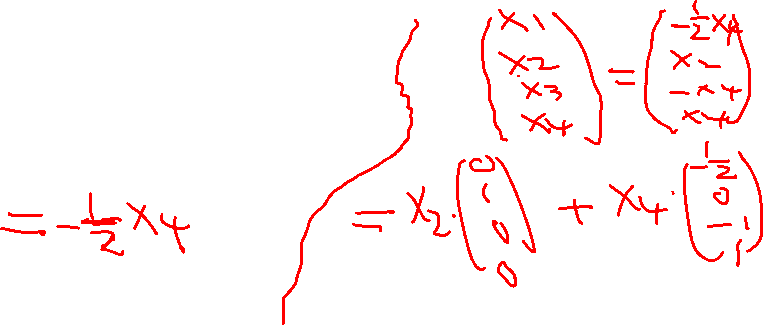 = -1/2 x4
(x1, x2, x3, x4) = (-1/2 x4, x2, -x4, x4)
= x2 · (0, 1, 0, 0) + x4 · (-1/2, 0, -1, 1)